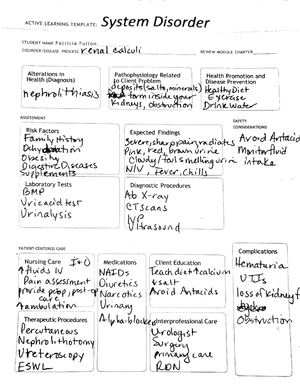 ACTIVE LEARNING TEMPLATE: System Disorder
STUDENT NAME Patricia Fulton
DISORDER/DISEASE PROCESS renal calculi REVIEW MODULE CHAPTER
Alterations in
Health (Diagnosis)
nephrolithiasis
Pathophysiology Related
to Client Problem
deposits (salts, minerals)
form inside your
Kidneys, obstruction
Health Promotion and
Disease Prevention
Healthy Diet
Exercise
Drink water
ASSESSMENT
Risk Factors
Family History
Dehydration
Obesity
Digestive Diseases
Supplements
Expected Findings
Severe, sharp pain, radiates
Pink, red, brown urine
Cloudy/foul smelling urine
N/V, Fever, Chills
SAFETY
CONSIDERATIONS
Avoid Antacid
Monitor fluid
intake
Laboratory Tests
BMP
Uric acid test
Urinalysis
Diagnostic Procedures
Ab X-ray
CT scans
IVP
Ultrasound
PATIENT-CENTERED CARE
Nursing Care I+O
↑ fluids IV
Pain assessment
provide preop, post-op
care
↑ ambulation
Medications
NAIDs
Diuretics
Narcotics
Urinary
Alpha-blocker
Client Education
Teach diet ↑ calcium
↓ salt
Avoid Antacids
Therapeutic Procedures
Percutaneous
Nephrolithotomy
Ureteroscopy
ESWL
Interprofessional Care
Urologist
Surgery
primary care
RDN
Complications
Hematuria
UTIs
loss of kidney f
Obstruction